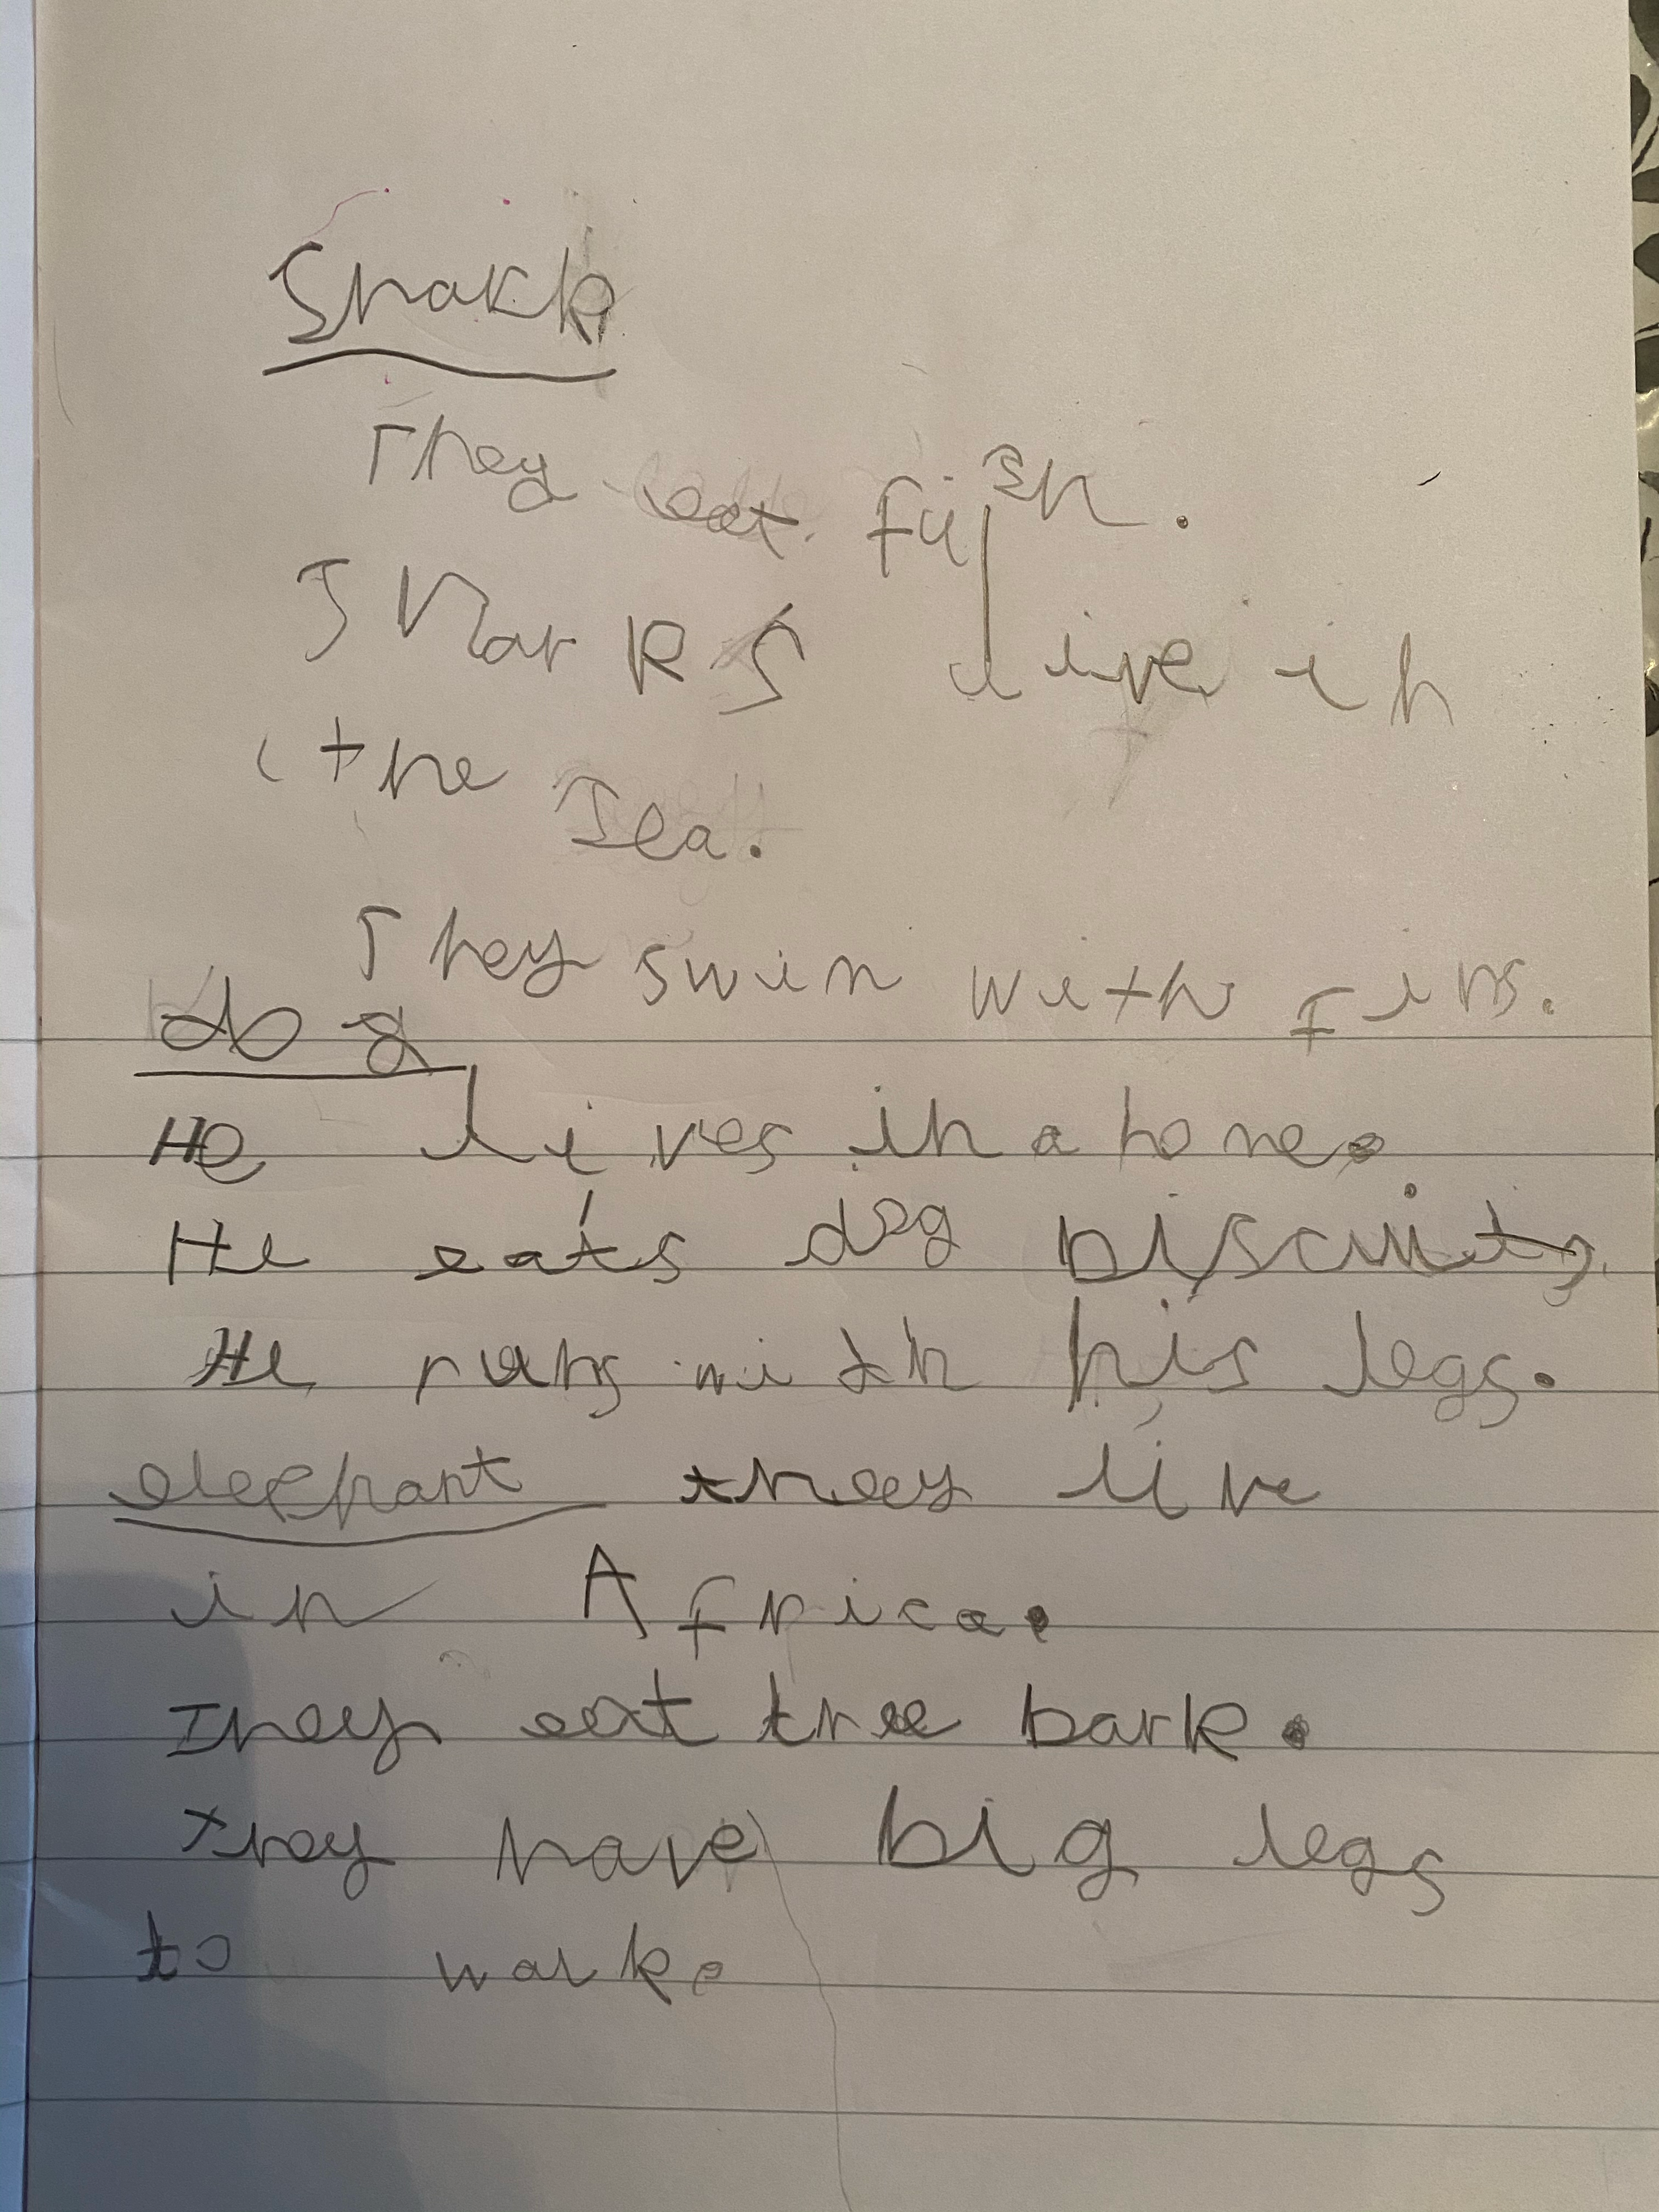 Shark
They eat fish.
Sharks live in
the Sea.
They swim with fins.
dog
He lives in a home.
He eats dog biscuits.
He runs with his legs.
elephant they live
in Africa.
They eat tree bark.
they have big legs
to walk.